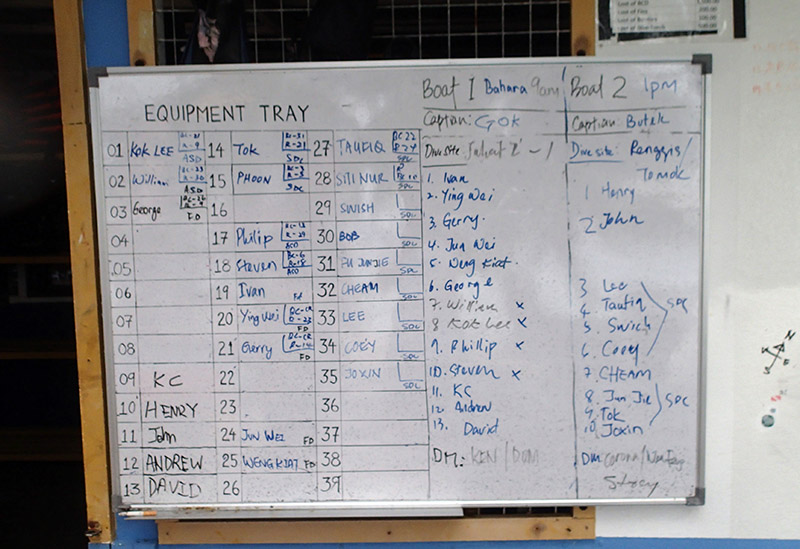 EQUIPMENT TRAY
01 KOK LEE ASD
02 William ASD
03 George FD
04
05
06
07
08
09 KC
10 HENRY
11 John
12 ANDREW
13 DAVID
14 TOK SDC
15 PHOON SDC
16
17 Philip
18 Steven
19 Ivan Fd
20 Ying Wei FD
21 Gerry FD
22
23
24 JUN WEI FD
25 WENGKIAT FD
26
27 TAUFIQ SDC
28 SITI NUR SDC
29 SWISH SDC
30 BOB SDC
31 FU JUN JIE SDC
32 CHEAM SDC
33 LEE SDC
34 COEY SDC
35 JOXIN SDC
36
37
38
39
Boat 1 Bahara 9am
Captian: GOK
Dive site
1. Ivan
2. Ying Wei
3. Gerry
4. Jun Wei
5. Weng Kiat
6. George
7. William x
8 Kok Lee x
9. Phillip x
10. Steven x
11. KC
12. Andrew
13. David
DM: KEN / DOM
Boat 2 1pm
Captian: Butak
Dive site: Renggis/
Tomok
1 Henry
2 John
3 Lee
4 Taufiq
5. Swish
6. Coey
SDC
7. CHEAM
8. Jun Jie
9. Tok
10 Joxin
SDC
DM: